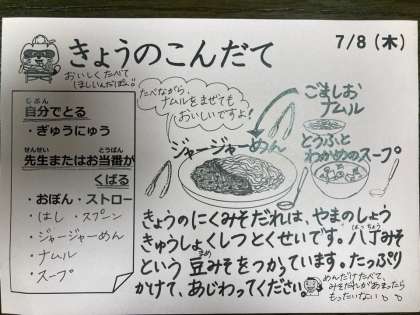 きょうのこんだて
7/8（木）
おいしくたべて
ほしいんだぽん。
自分でとる
じぶん
・ぎゅうにゅう
先生またはお当番が
せんせい
とうばん
くばる
・おぼん・ストロー
・はし・スプーン
・ジャージャーめん
・ナムル
・スープ
たべながら、
ナムルをまぜても
おいしいですよ!
ごましお
ナムル
ジャージャーめん
とうふと
わかめのスープ
きょうのにくみそだれは、やまのしょう
きゅうしょくしつとくせいです。八丁みそ
はっちょう
という豆みそをつかっています。たっぷり
まめ
かけて、あじわってください。
めんだけたべて、
みそだれがあまったら
もったいない。